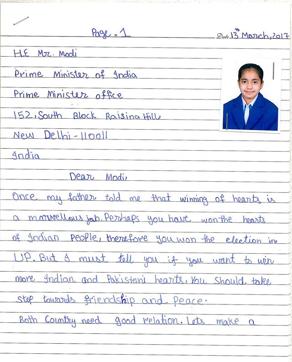 Page. 1
13th March, 2017
H.E Mr. Modi
Prime Minister of India
Prime Minister office
152, South Block Raisina Hill
New Delhi-110011
India
Dear Modi,
Once my father told me that winning of hearts is
a marvellous job. Perhaps you have won the hearts
of Indian people, therefore you won the election in
UP. But I must tell you if you want to win
more Indian and Pakistani hearts, You should take
step towards friendship and peace.
Both Country need good relation. Lets make a